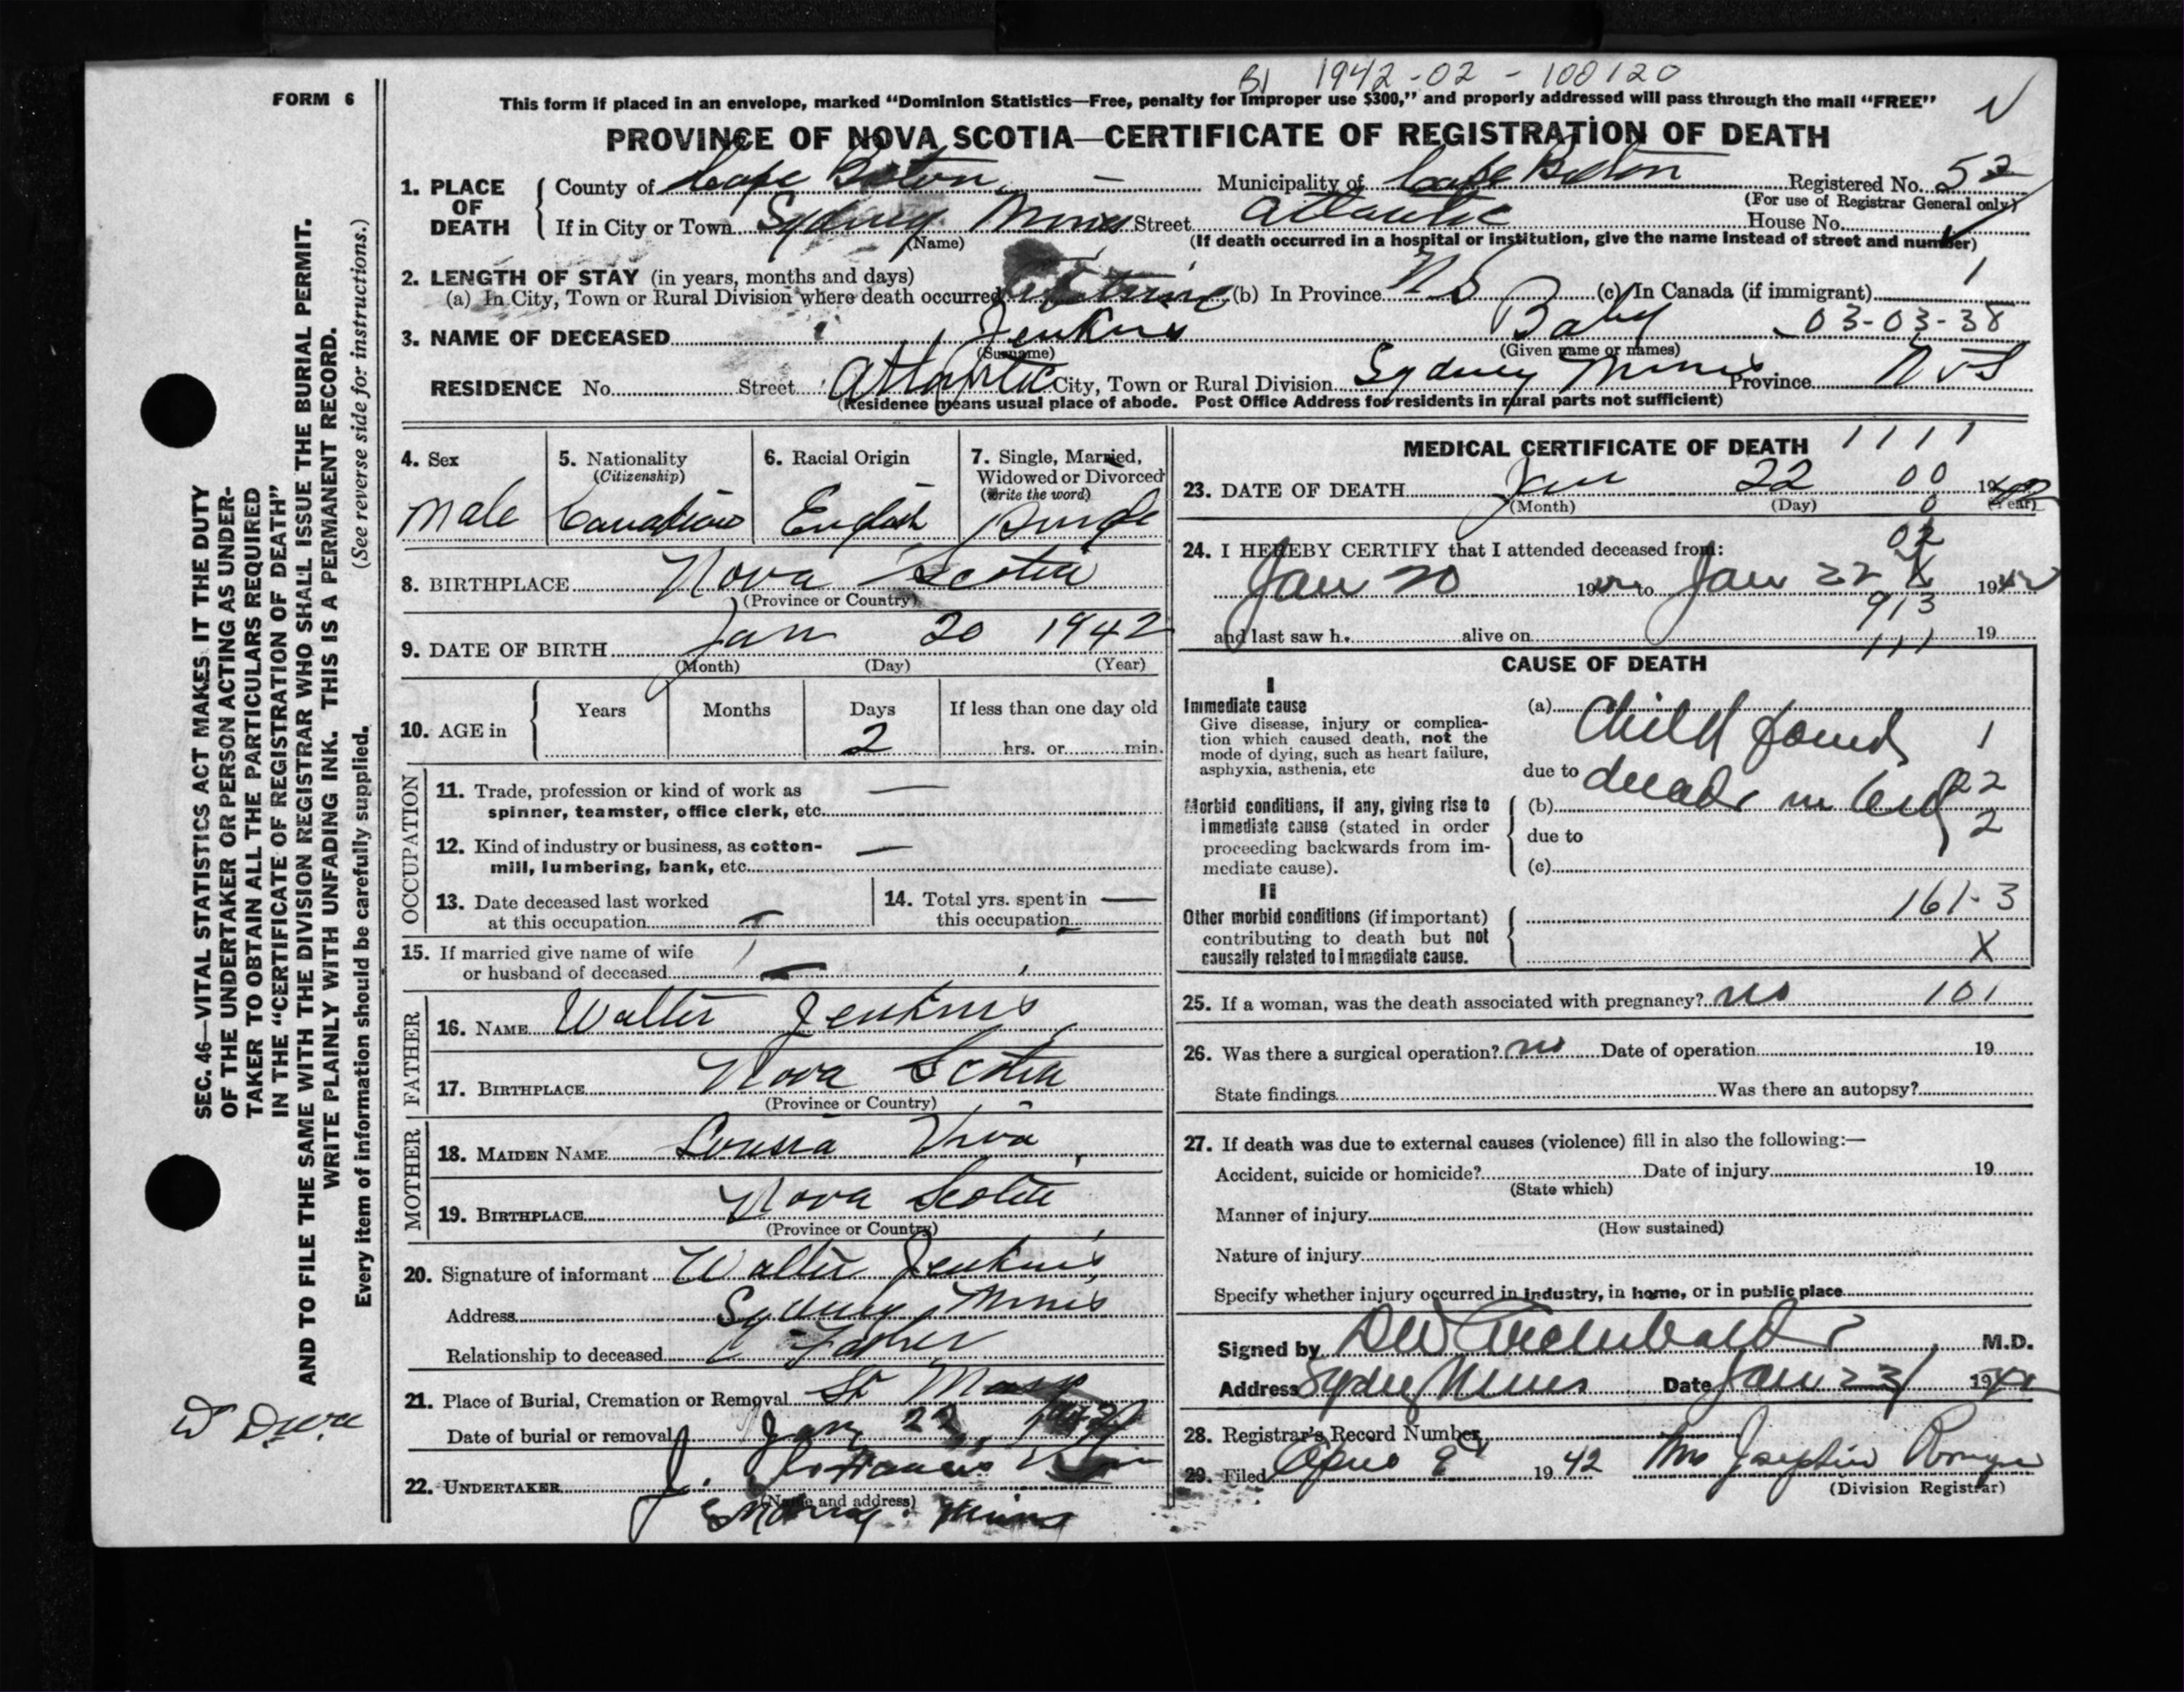 BJ 1942-02-100120
FORM 6
This form if placed in an envelope, marked "Dominion Statistics—Free, penalty for improper use $300," and properly addressed will pass through the mail "FREE"
PROVINCE OF NOVA SCOTIA—CERTIFICATE OF REGISTRATION OF DEATH
1. PLACE OF DEATH County of Cape Breton Municipality of Cape Breton Registered No. 52
(For use of Registrar General only)
If in City or Town Sydney Mines Street Atlantic House No.
(Name) (If death occurred in a hospital or institution, give the name instead of street and number)
2. LENGTH OF STAY (in years, months and days)
(a) In City, Town or Rural Division where death occurred lifetime (b) In Province NS (c) In Canada (if immigrant) 1
3. NAME OF DECEASED Jenkins Baby 03-03-38
(Surname) (Given name or names)
RESIDENCE No. Street Atlantic City, Town or Rural Division Sydney Mines Province NS
(Residence means usual place of abode. Post Office Address for residents in rural parts not sufficient)
4. Sex Male
5. Nationality (Citizenship) Canadian
6. Racial Origin English
7. Single, Married, Widowed or Divorced (write the word) Single
8. BIRTHPLACE Nova Scotia
(Province or Country)
9. DATE OF BIRTH Jan 20 1942
(Month) (Day) (Year)
10. AGE in Years Months Days If less than one day old
2 hrs. or min.
OCCUPATION
11. Trade, profession or kind of work as spinner, teamster, office clerk, etc. —
12. Kind of industry or business, as cotton-mill, lumbering, bank, etc. —
13. Date deceased last worked at this occupation —
14. Total yrs. spent in this occupation —
15. If married give name of wife or husband of deceased —
FATHER
16. NAME Walter Jenkins
17. BIRTHPLACE Nova Scotia
(Province or Country)
MOTHER
18. MAIDEN NAME Louisa
19. BIRTHPLACE Nova Scotia
(Province or Country)
20. Signature of informant Walter Jenkins
Address Sydney Mines
Relationship to deceased Father
21. Place of Burial, Cremation or Removal St
Date of burial or removal Jan
22. UNDERTAKER J.
(Name and address)
Sydney Mines
MEDICAL CERTIFICATE OF DEATH 1111
23. DATE OF DEATH Jan 22 00 1942
(Month) (Day) 0 (Year)
24. I HEREBY CERTIFY that I attended deceased from: 02
Jan 20 1942 to Jan 22 X 1942
913
and last saw h. alive on 19
111
CAUSE OF DEATH
I
Immediate cause
Give disease, injury or complication which caused death, not the mode of dying, such as heart failure, asphyxia, asthenia, etc
(a) Child found 1
due to dead in bed 22
Morbid conditions, if any, giving rise to immediate cause (stated in order proceeding backwards from immediate cause).
(b) 2
due to
(c)
II
Other morbid conditions (if important) contributing to death but not causally related to immediate cause.
161-3
X
25. If a woman, was the death associated with pregnancy? no 101
26. Was there a surgical operation? no Date of operation 19
State findings Was there an autopsy?
27. If death was due to external causes (violence) fill in also the following:—
Accident, suicide or homicide? Date of injury 19
(State which)
Manner of injury
(How sustained)
Nature of injury
Specify whether injury occurred in industry, in home, or in public place
Signed by DW Archibald M.D.
Address Sydney Mines Date Jan 23 1942
28. Registrar's Record Number
29. Filed 1942 Mrs Josephine
(Division Registrar)
SEC. 46—VITAL STATISTICS ACT MAKES IT THE DUTY
OF THE UNDERTAKER OR PERSON ACTING AS UNDER-
TAKER TO OBTAIN ALL THE PARTICULARS REQUIRED
IN THE "CERTIFICATE OF REGISTRATION OF DEATH"
AND TO FILE THE SAME WITH THE DIVISION REGISTRAR WHO SHALL ISSUE THE BURIAL PERMIT.
WRITE PLAINLY WITH UNFADING INK. THIS IS A PERMANENT RECORD.
Every item of information should be carefully supplied. (See reverse side for instructions.)